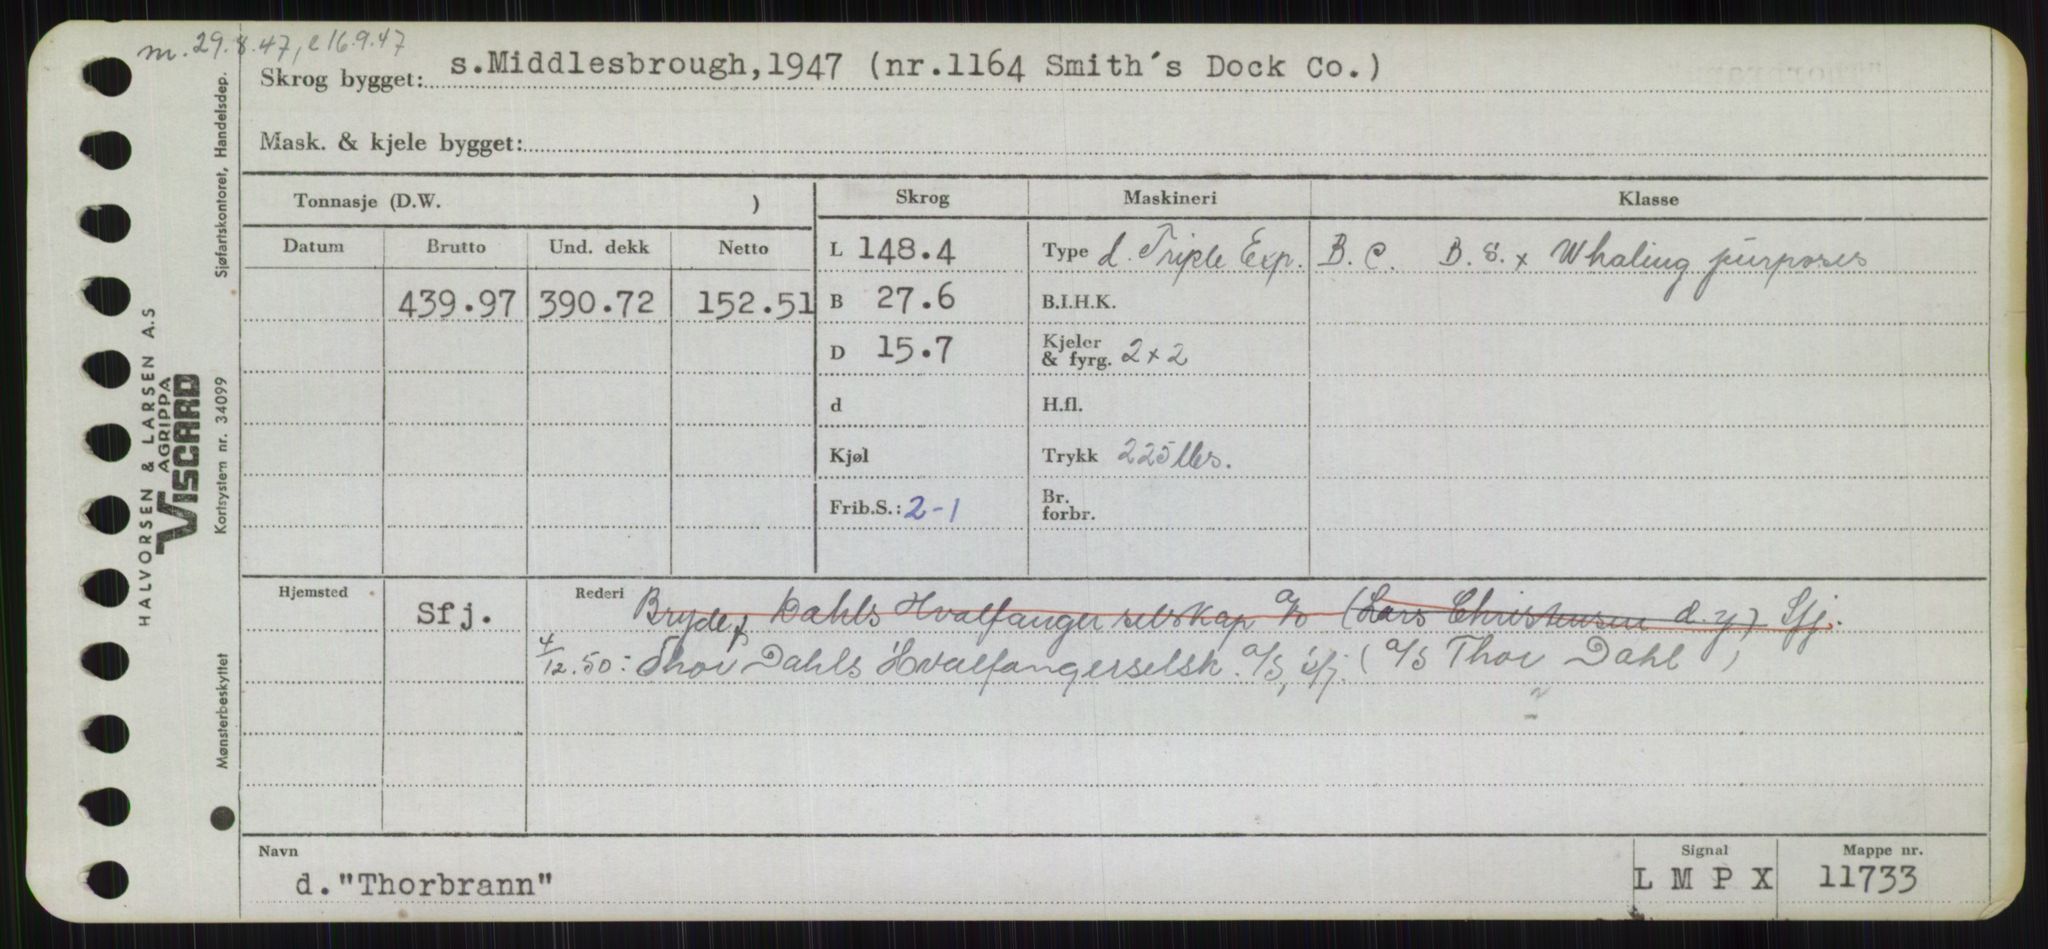 m. 29.8.47, e 16.9.47
Skrog bygget: s.Middlesbrough,1947 (nr.1164 Smith´s Dock Co.)
Mask. & kjele bygget:
Tonnasje (D.W. )
Skrog Maskineri Klasse
Datum Brutto Und. dekk Netto
L 148.4 Type d. Triple Exp. B. C. B. S. x Whaling purposes
439.97 390.72 152.51 B 27.6 B.I.H.K.
D 15.7 Kjeler & fyrg. 2 x 2
d H.fl.
Kjøl Trykk 225 lbs.
Frib.S.: 2-1 Br. forbr.
Hjemsted Sfj. Rederi Bryde & Dahls Hvalfangerselskap A/S (Lars Christensen d.y.) Sfj.
4/12.50: Thor Dahls Hvalfangerselsk. A/S, Sfj. (A/S Thor Dahl)
Navn d."Thorbrann"
Signal L M P X
Mappe nr. 11733
HALVORSEN & LARSEN A.S
AGRIPPA
VISCARD
Sjøfartskontoret, Handelsdep.
Kortsystem nr. 34099
Mønsterbeskyttet